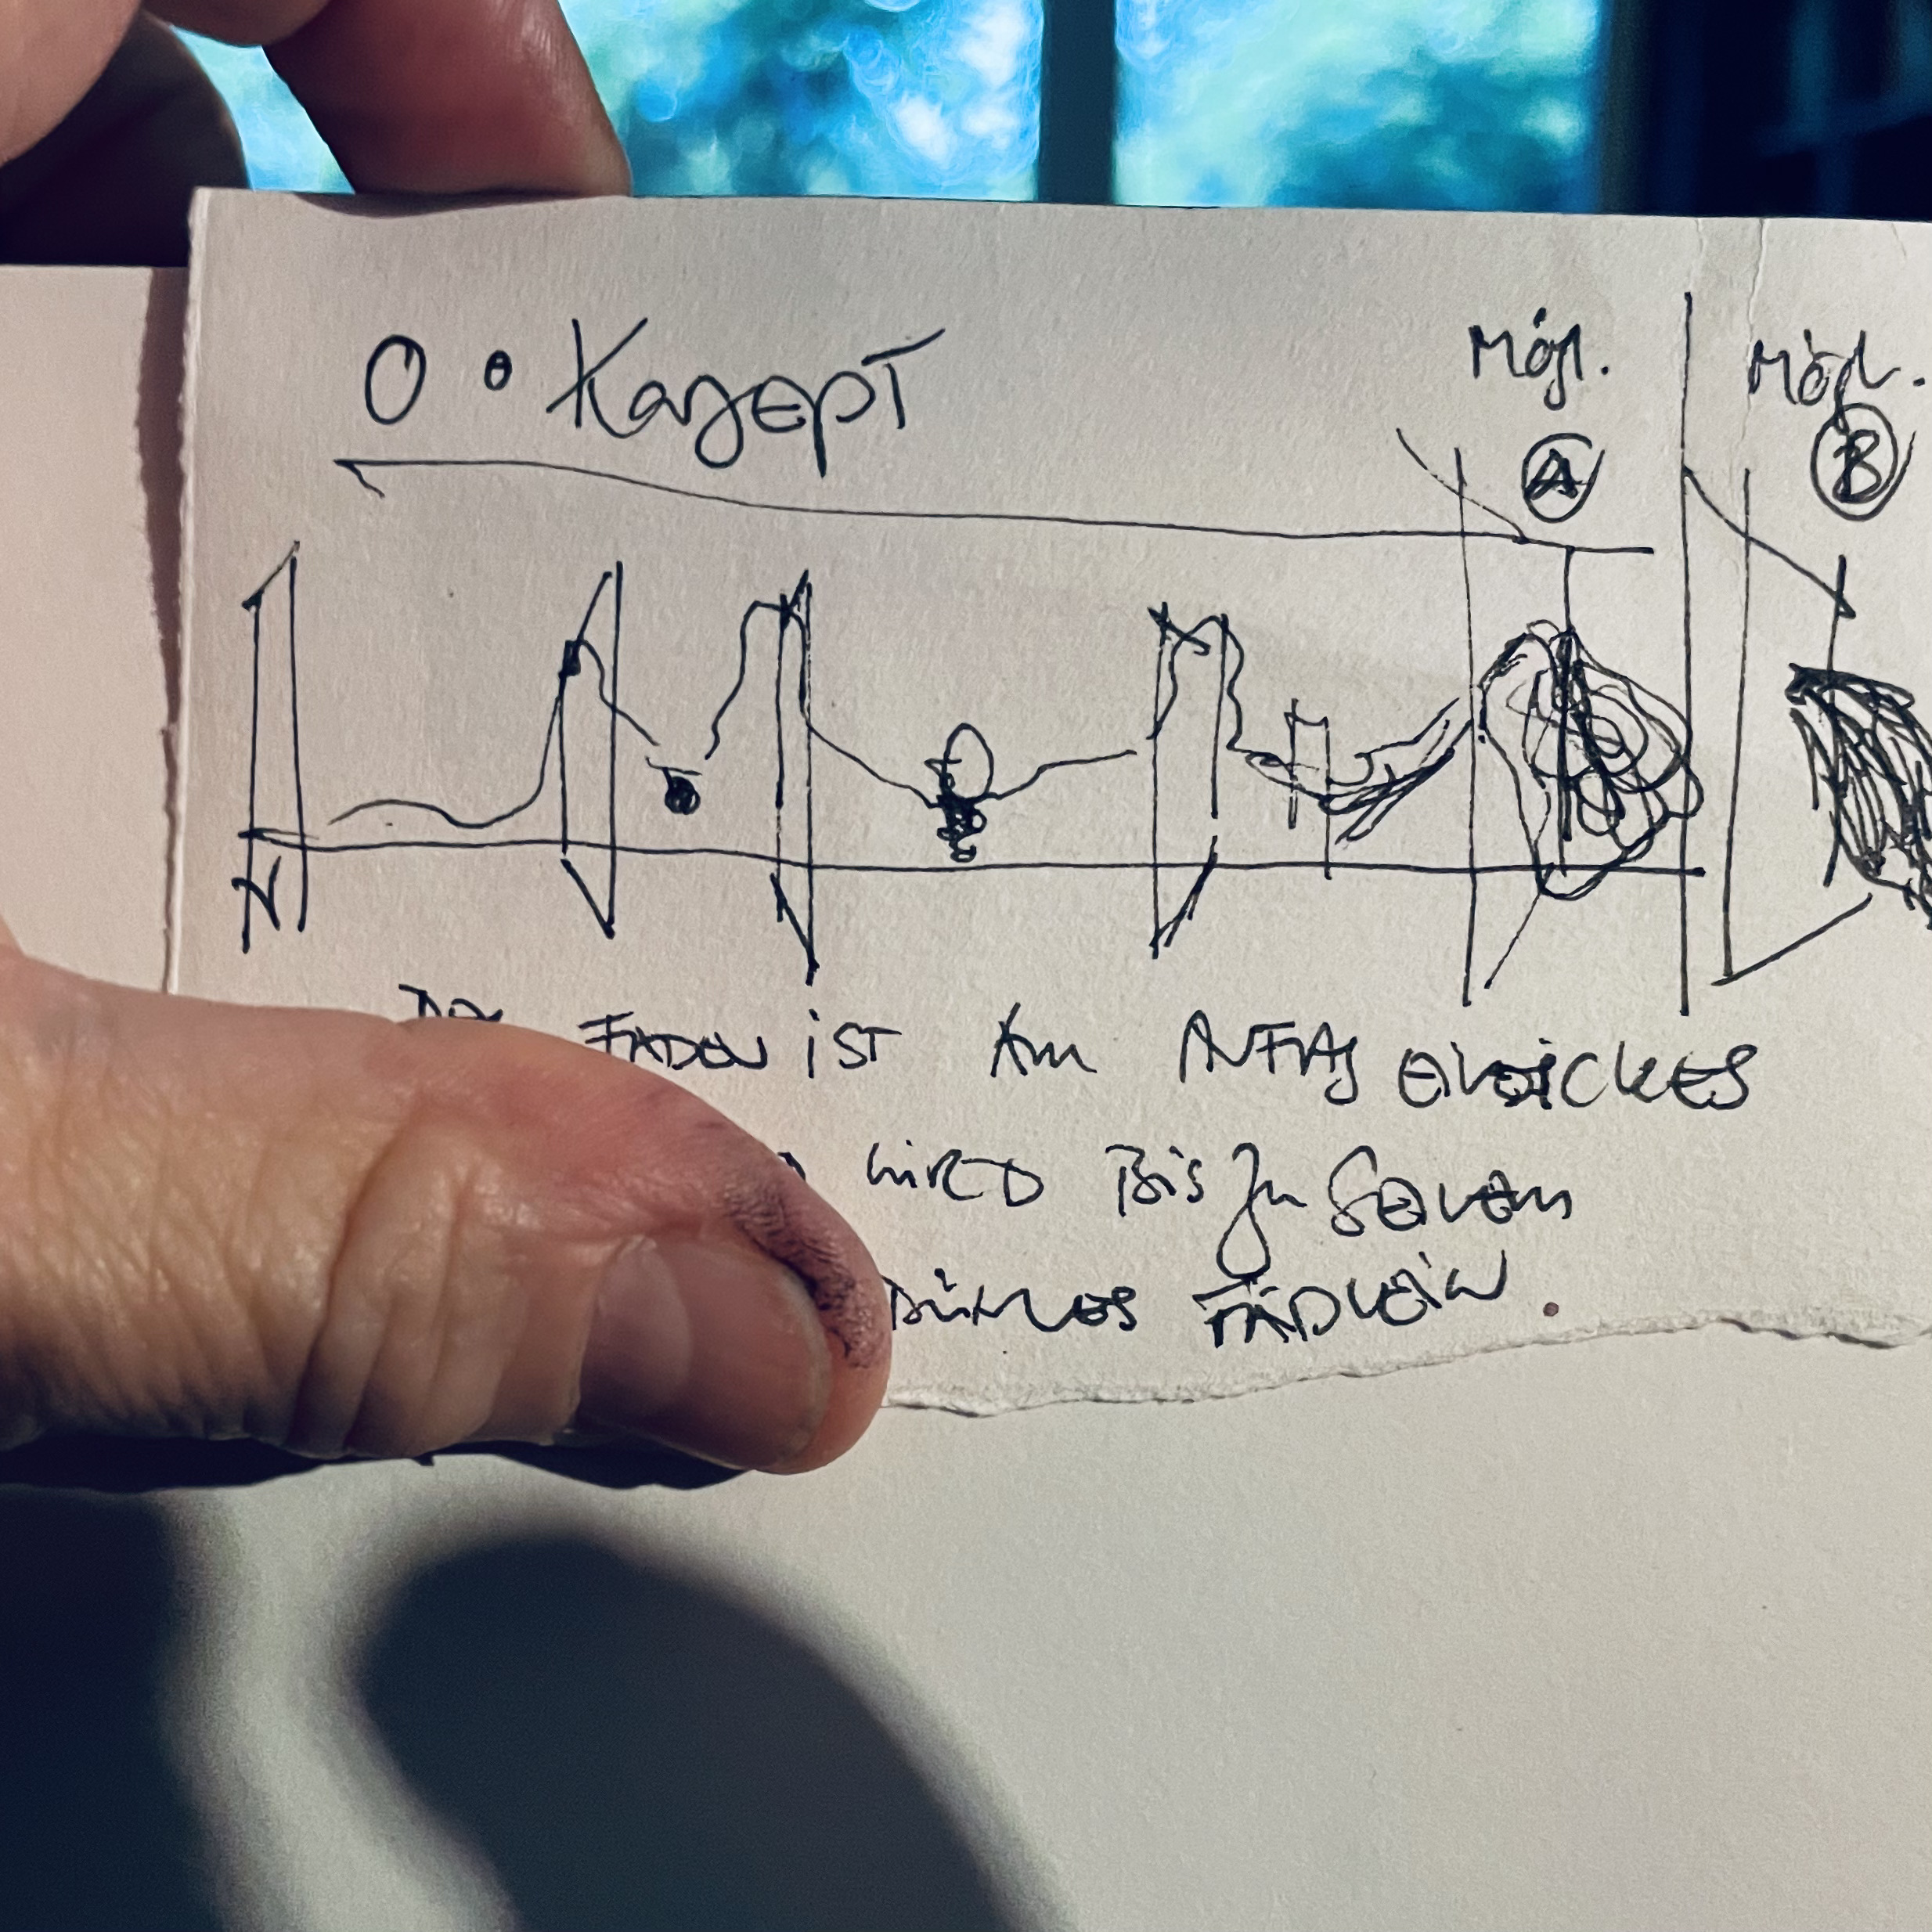 O • Konzept
Mögl. Mögl.
A B
Der FADEN iST Am ANFANG EiN DICKES
WIRD Bis zu SEiNEM
DÜNNES FÄDLEiN.